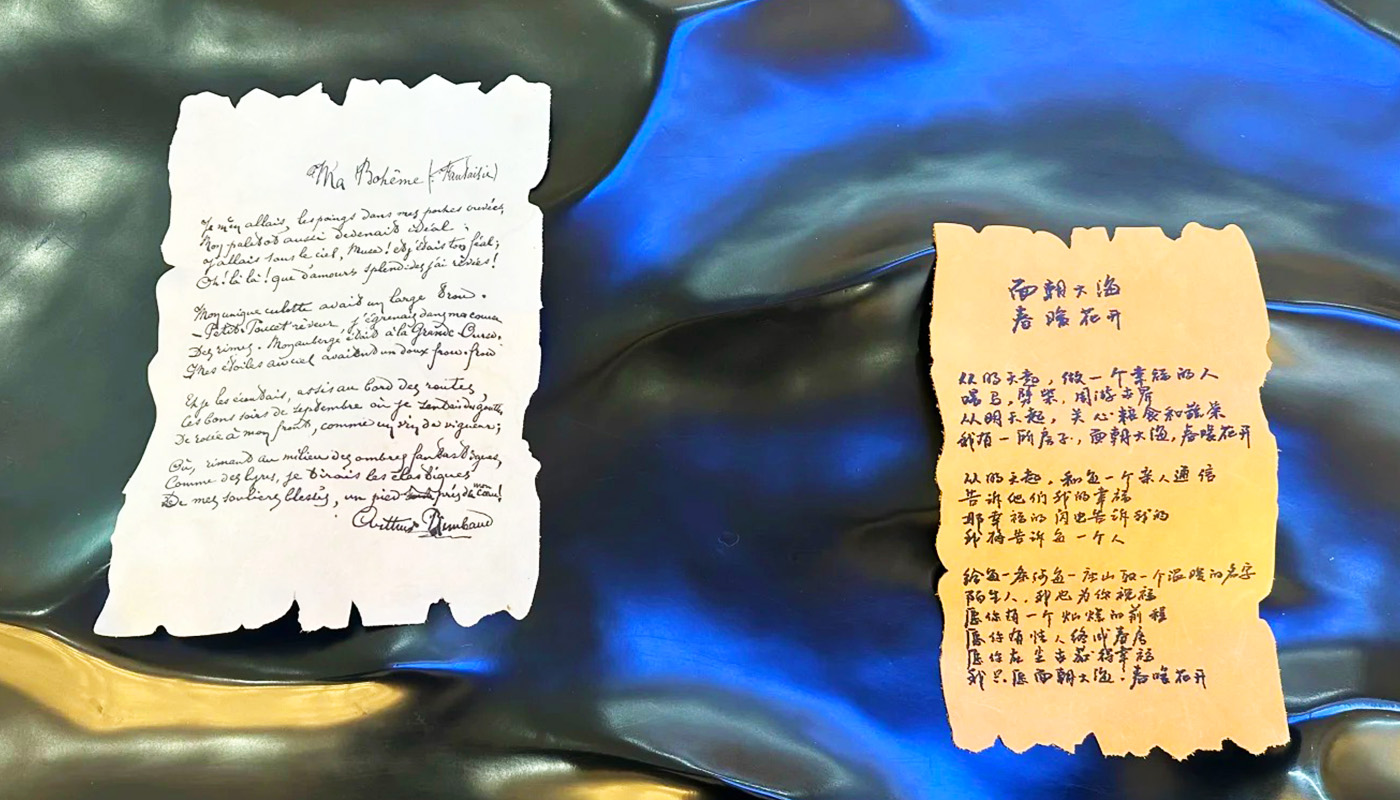 Ma Bohême (Fantaisie)
Je m'en allais, les poings dans mes poches crevées,
Mon paletot aussi devenait idéal ;
J'allais sous le ciel, Muse ! et j'étais ton féal ;
Oh ! là là ! que d'amours splendides j'ai rêvées !
Mon unique culotte avait un large trou.
— Petit-Poucet rêveur, j'égrenais dans ma course
Des rimes. Mon auberge était à la Grande-Ourse.
Mes étoiles au ciel avaient un doux frou-frou
Et je les écoutais, assis au bord des routes,
Ces bons soirs de septembre où je sentais des gouttes
De rosée à mon front, comme un vin de vigueur ;
Où, rimant au milieu des ombres fantastiques,
Comme des lyres, je tirais les élastiques
De mes souliers blessés, un pied près de mon cœur !
Arthur Rimbaud
面朝大海
春暖花开
从明天起，做一个幸福的人
喂马，劈柴，周游世界
从明天起，关心粮食和蔬菜
我有一所房子，面朝大海，春暖花开
从明天起，和每一个亲人通信
告诉他们我的幸福
那幸福的闪电告诉我的
我将告诉每一个人
给每一条河每一座山取一个温暖的名字
陌生人，我也为你祝福
愿你有一个灿烂的前程
愿你有情人终成眷属
愿你在尘世获得幸福
我只愿面朝大海，春暖花开